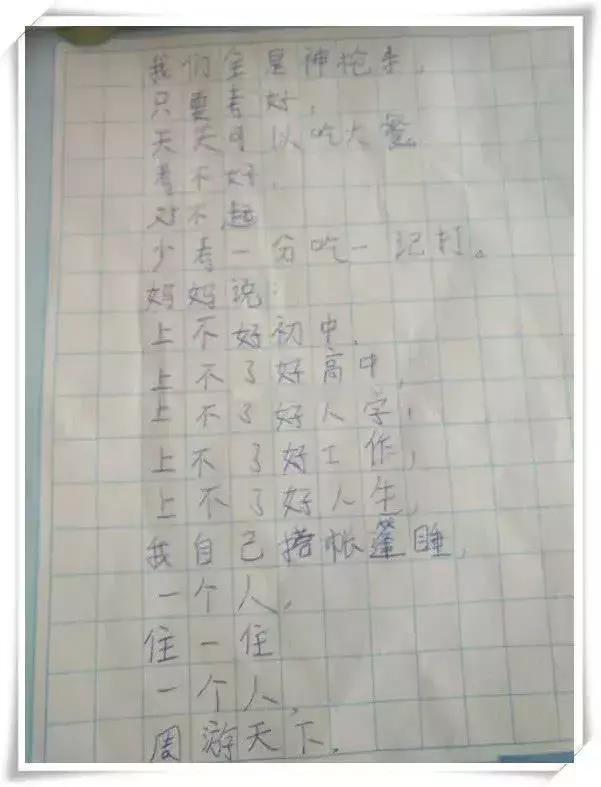 我们全是神枪手,
只要考好,
天天可以吃大餐
考不好,
对不起
少考一分吃一记打。
妈妈说:
上不好初中,
上不了好高中,
上不了好人学,
上不了好工作,
上不了好人生,
我自己搭帐篷睡,
一个人,
住一住
一个人,
周游天下.